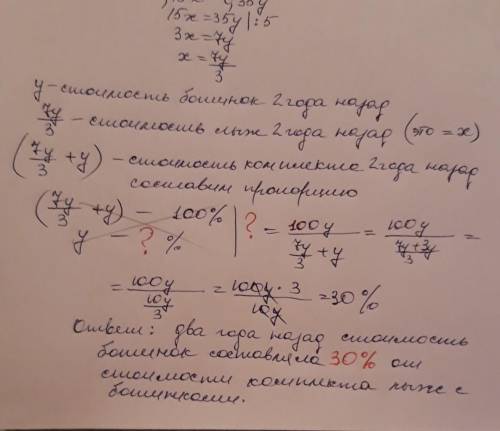 15x = 35y |:5
3x = 7y
x = 7y/3
y - стоимость ботинок 2 года назад
7y/3 - стоимость лыж 2 года назад (это = x)
(7y/3 + y) - стоимость комплекта 2 года назад
составим пропорцию
(7y/3 + y) - 100%
y - ? % | ? = 100y / (7y/3 + y) = 100y / ((7y+3y)/3) =
= 100y / (10y/3) = 100y · 3 / 10y = 30%
Ответ: два года назад стоимость
ботинок составляла 30% от
стоимости комплекта лыж с
ботинками.